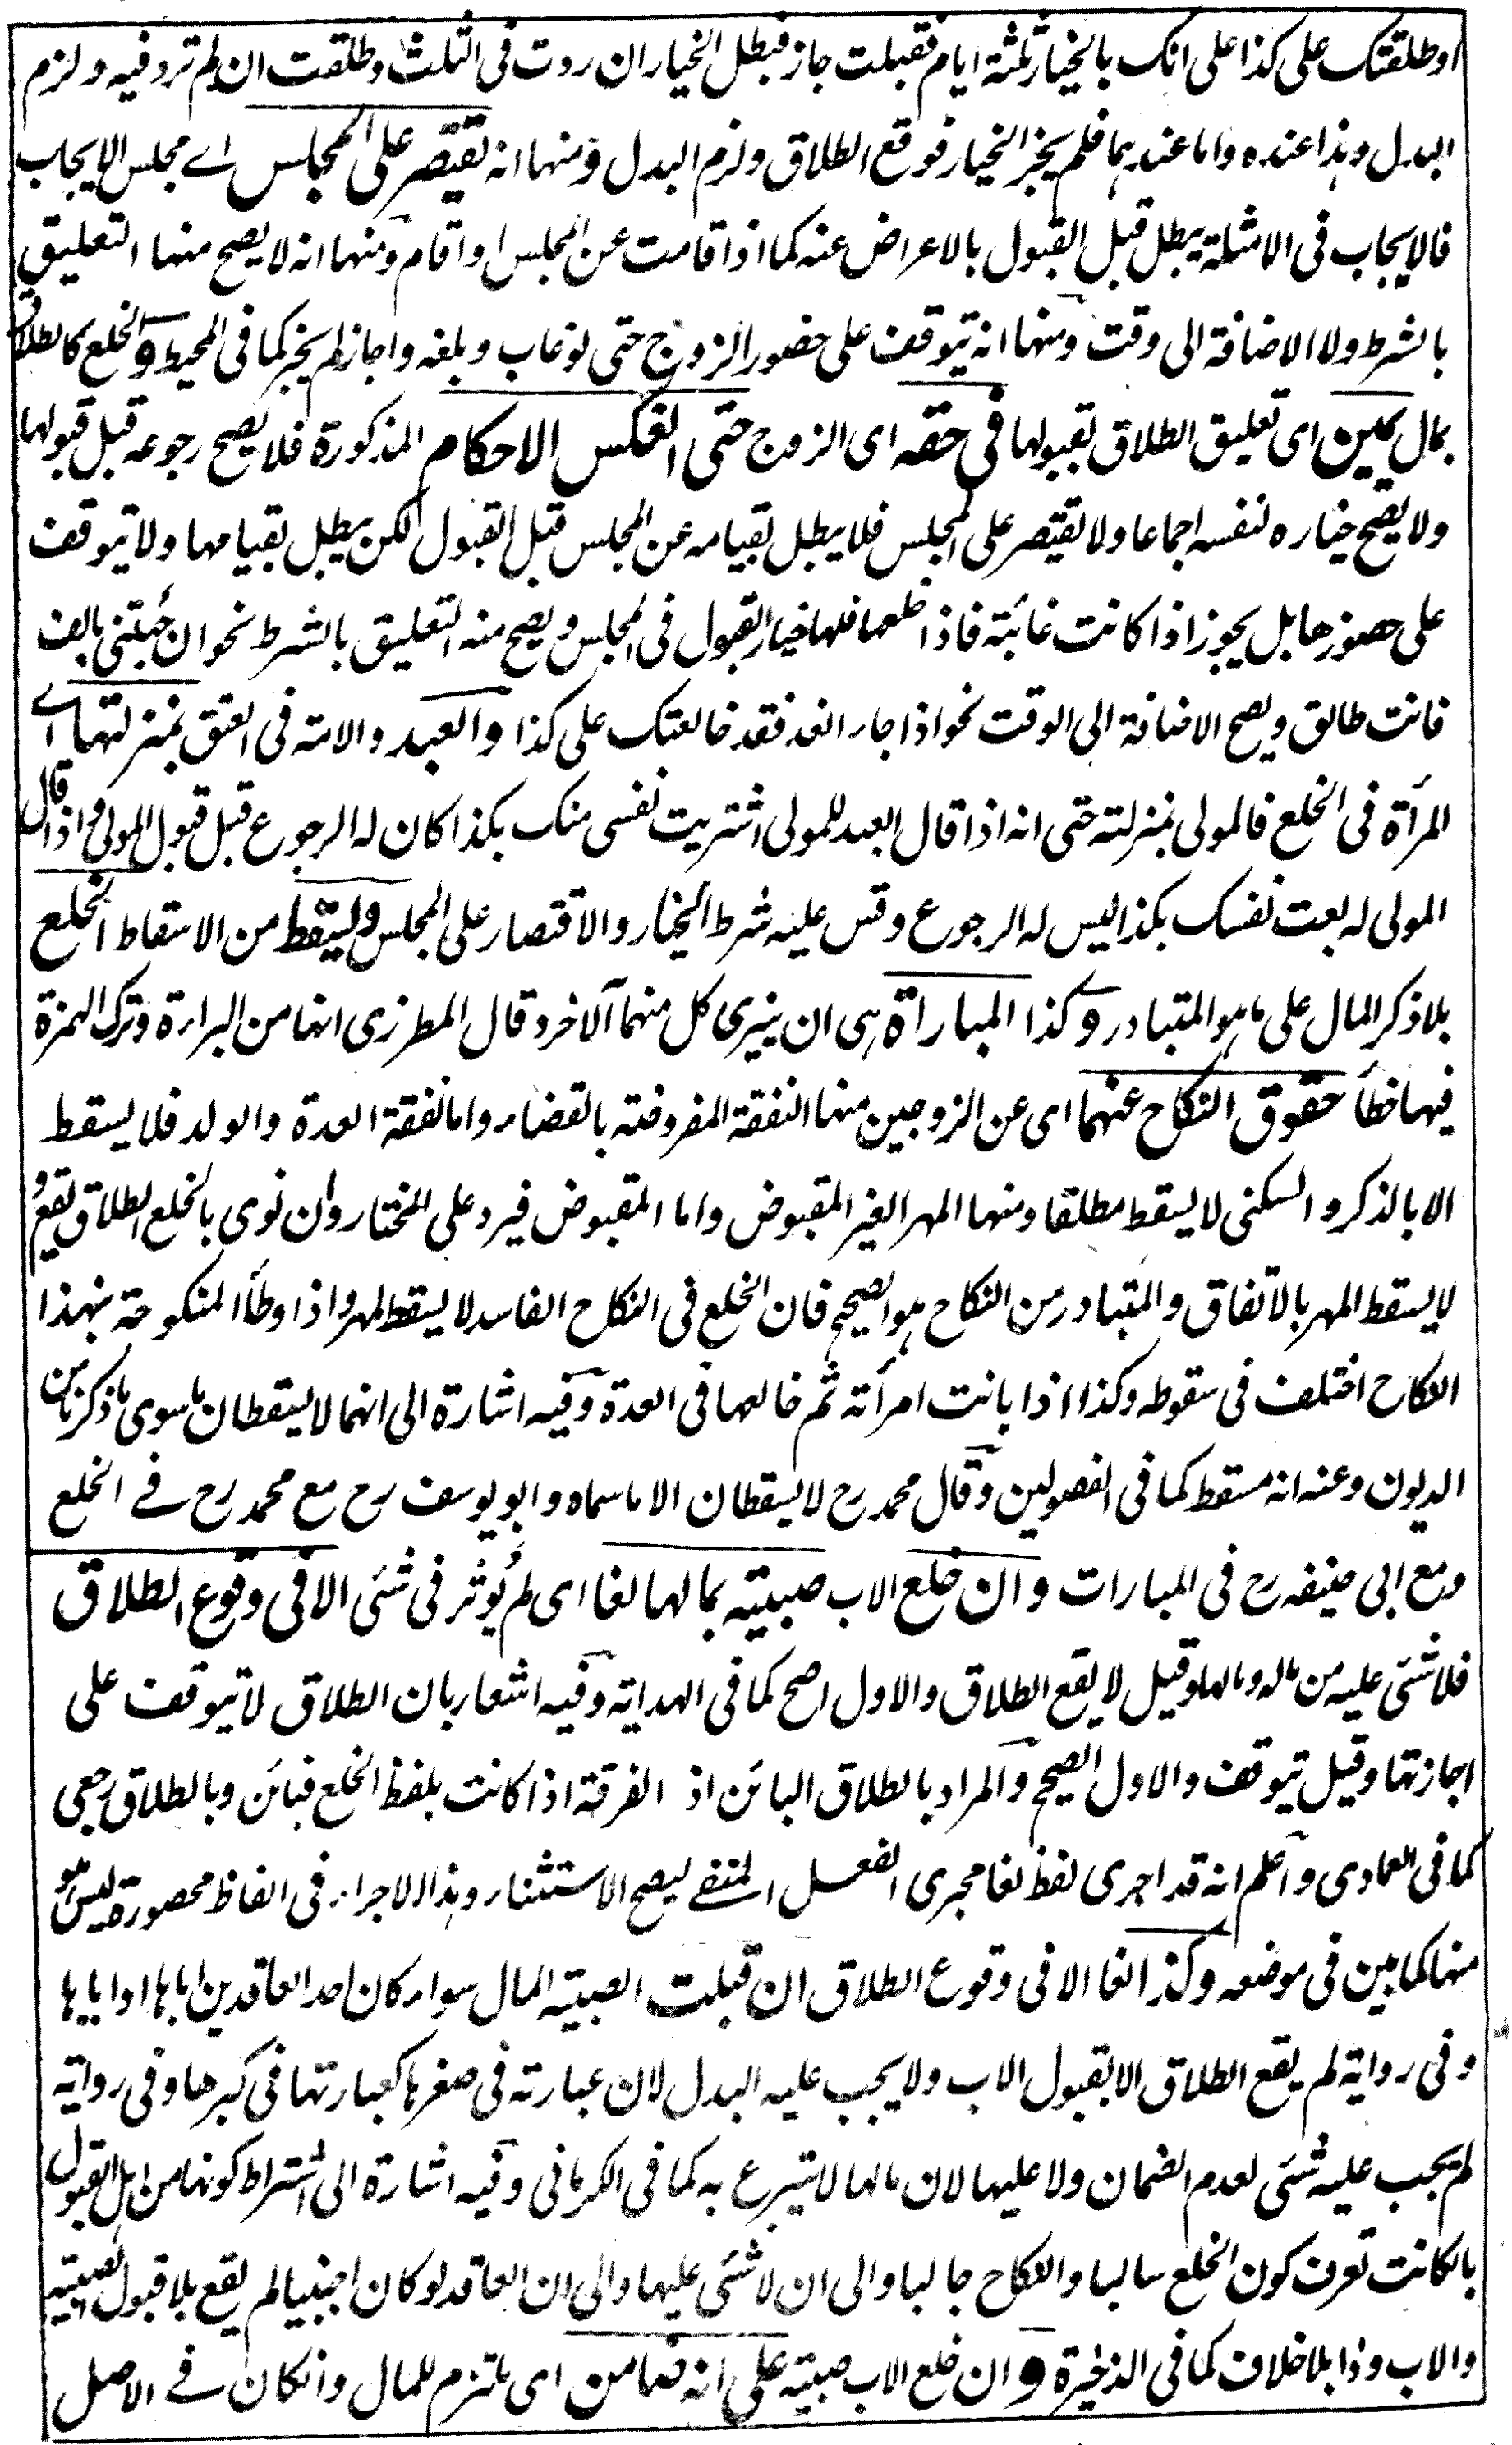 او طلقتك على كذا على انك بالخيار ثلثة ايام فقبلت جاز فبطل الخيار ان ردت فى الثلث وطلقت ان لم ترد فيه ولزم
البدل وهذا عنده واما عندهما فلم يجز الخيار فوقع الطلاق ولزم البدل ومنها انه يقتصر على المجلس اے مجلس الايجاب
فالايجاب فى الامثلة يبطل قبل القبول بالاعراض عنه كما اذا قامت عن المجلس او اقام ومنها انه لا يصح منها التعليق
بالشرط ولا الاضافة الى وقت ومنها انه يتوقف على حضور الزوج حتى لو غاب وبلغه واجاز لم يجز كما فى المحيط والخلع كالطلاق
بمال يمين اى تعليق الطلاق بقبولها فى حقه اى الزوج حتى انعكس الاحكام المذكورة فلا يصح رجوعه قبل قبولها
ولا يصح خياره لنفسه اجماعا ولا يقتصر على المجلس فلا يبطل بقيامه عن المجلس قبل القبول لكن يبطل بقيامها ولا يتوقف
على حضورها بل يجوز اذا كانت غائبة فاذا خلعها فلها خيار القبول فى المجلس ويصح منه التعليق بالشرط نحو ان جئتنى بالف
فانت طالق ويصح الاضافة الى الوقت نحو اذا جاء الغد فقد خالعتك على كذا والعبد والامة فى العتق بمنزلتها اے
المرأة فى الخلع فالمولى بمنزلته حتى انه اذا قال العبد للمولى اشتريت نفسى منك بكذا كان له الرجوع قبل قبول المولى واذا قال
المولى له بعت نفسك بكذا ليس له الرجوع وقس عليه شرط الخيار والاقتصار على المجلس ويسقط من الاسقاط الخلع
بلا ذكر المال على ما هو المتبادر وكذا المباراة هى ان يبرى كل منهما الآخر وقال المطرزى انها من البراءة وترك الهمزة
فيها خطأ حقوق النكاح عنهما اى عن الزوجين منها النفقة المفروضة بالقضاء واما نفقة العدة والولد فلا يسقط
الا بالذكر والسكنى لا يسقط مطلقا ومنها المهر الغير المقبوض واما المقبوض فيرد على المختار وان نوى بالخلع الطلاق يقع و
لا يسقط المهر بالاتفاق والمتبادر من النكاح هو الصحيح فان الخلع فى النكاح الفاسد لا يسقط المهر واذا وطأ المنكوحة بهذا
النكاح اختلف فى سقوطه وكذا اذا بانت امرأته ثم خالعها فى العدة وفيه اشارة الى انهما لا يسقطان ما سوى ما ذكرنا من
الديون وعنه انه مسقط كما فى الفصولين وقال محمد رح لا يسقطان الا ما سماه وابو يوسف رح مع محمد رح فے الخلع
ومع ابى حنيفه رح فى المبارات وان خلع الاب صبيته بمالها لغا اى لم يؤثر فى شئ الا فى وقوع الطلاق
فلا شئ عليه من ماله ومالها وقيل لا يقع الطلاق والاول اصح كما فى الهداية وفيه اشعار بان الطلاق لا يتوقف على
اجازتها وقيل يتوقف والاول الصحيح والمراد بالطلاق البائن اذ الفرقة اذا كانت بلفظ الخلع فبائن وبالطلاق رجعى
كما فى العمادى واعلم انه قد اجرى لفظ لغا مجرى الفعل المنفے ليصح الاستثناء وهذا الاجراء فى الفاظ محصورة ليس هو
منها كما بين فى موضعه وكذا لغا الا فى وقوع الطلاق ان قبلت الصبية المال سواء كان احد العاقدين اباها او اياها
وفى رواية لم يقع الطلاق الا بقبول الاب ولا يجب عليه البدل لان عبارته فى صغرها كعبارتها فى كبرها وفى رواية
لم يجب عليه شئ لعدم الضمان ولا عليها لان مالها لا يتبرع به كما فى الكرمانى وفيه اشارة الى اشتراط كونها من اهل القبول
بان كانت تعرف كون الخلع سالبا والنكاح جالبا والى ان لا شئ عليها والى ان العاقد لو كان اجنبيا لم يقع بلا قبول الصبية
والاب وذا بلا خلاف كما فى الذخيرة وان خلع الاب صبيته على انه ضامن اى ملتزم للمال وان كان فے الاصل